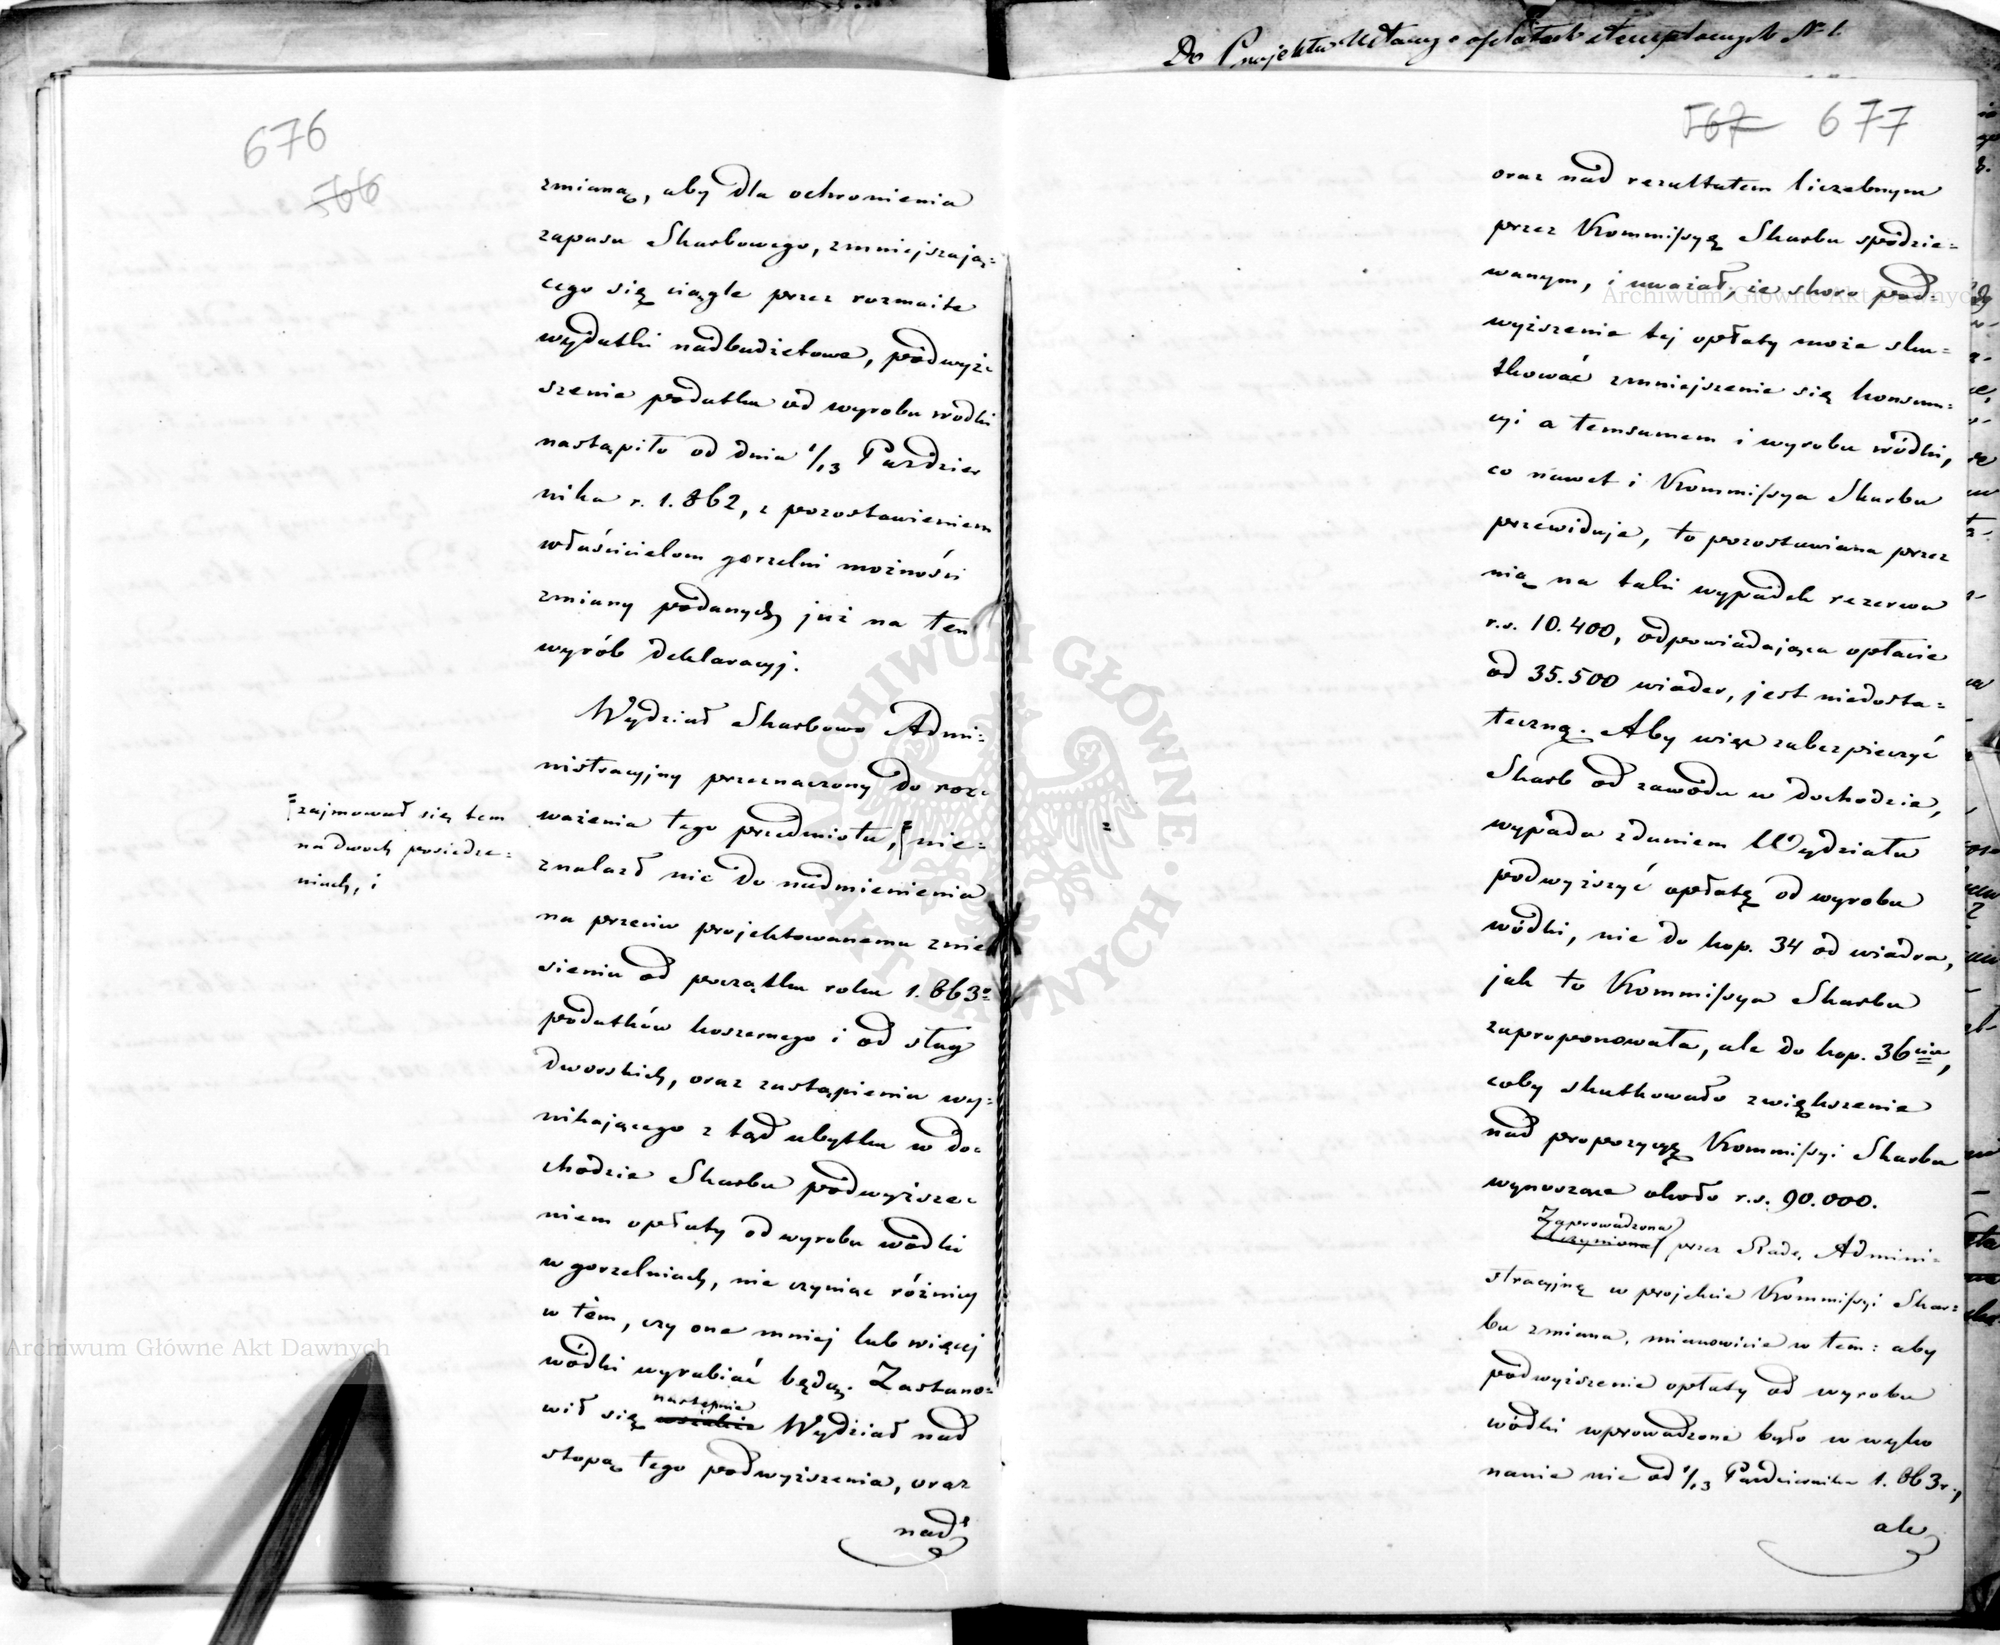 Do Projektu Ustawy o opłatach stemplowych Nr 1.
676
566
zmianą, aby dla ochronienia
zapasu Skarbowego, zmniejszają=
cego się ciągle przez rozmaite
wydatki nadbudżetowe, podwyż=
szenie podatku od wyrobu wódki
nastąpiło od dnia 1/13 Paździer
nika r. 1.862, z pozostawieniem
właścicielom gorzelni możności
zmiany podanych już na ten
wyrób deklaracyj.
Wydział Skarbowo Admi=
nistracyjny przeznaczony do roz=
ważenia tego przedmiotu, nie=
zajmował się tem
na dwoch posiedze=
niach, i
znalazł nic do nadmienienia
na przeciw projektowanemu znie
sieniu od początku roku 1.863o
podatków koszernego i od sług
dworskich, oraz zastąpieniu wy=
nikającego z tąd ubytku w do=
chodzie Skarbu podwyższe=
niem opłaty od wyrobu wódki
w gorzelniach, nie czyniąc różnicy
w tém, czy one mniej lub więcej
wódki wyrabiać będą. Zastano=
następnie
wił się wszakże Wydział nad
stopą tego podwyższenia, oraz
nad
567 677
oraz nad rezultatem liczebnym
przez Kommissyę Skarbu spodzie=
wanym, i uważał, że skoro pod=
wyższenie tej opłaty może sku=
tkować zmniejszenie się konsum=
cyi a temsamem i wyrobu wódki,
co nawet i Kommissya Skarbu
przewiduje, to pozostawiana przez
nią na taki wypadek rezerwa
r.s. 10.400, odpowiadająca opłacie
od 35.500 wiader, jest niedosta=
teczną. Aby więc zabezpieczyć
Skarb od zawodu w dochodzie,
wypada zdaniem Wydziału
podwyższyć opłatę od wyrobu
wódki, nie do kop. 34 od wiadra,
jak to Kommissya Skarbu
zaproponowała, ale do kop. 36ciu,
coby skutkowało zwiększenie
nad propozycyę Kommissyi Skarbu
wynoszące około r.s. 90.000.
Zaprowadzona
Uczyniona przez Radę Admini=
stracyjną w projekcie Kommissyi Skar=
bu zmiana, mianowicie w tem: aby
podwyższenie opłaty od wyrobu
wódki wprowadzone było w wyko
nanie nie od 1/13 Października 1.863r.,
ale
Archiwum Główne Akt Dawnych
Archiwum Główne Akt Dawnych
ARCHIWUM GŁÓWNE AKT DAWNYCH